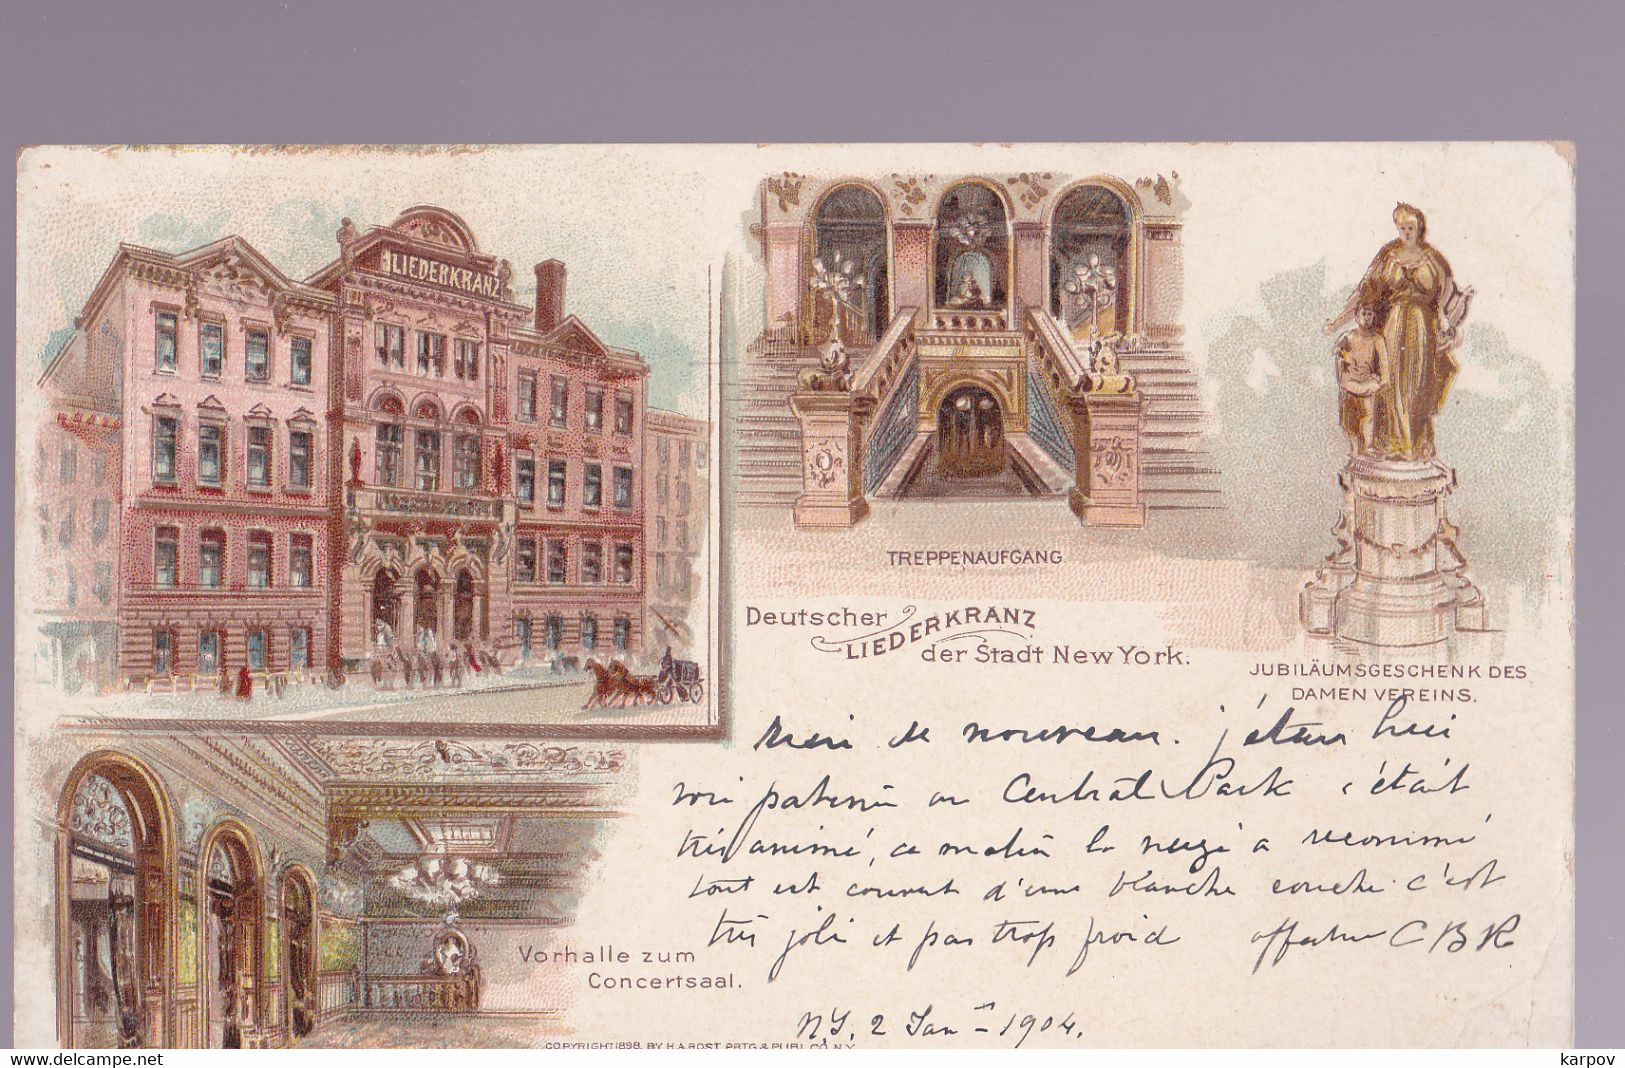 LIEDERKRANZ
TREPPENAUFGANG.
Deutscher
LIEDERKRANZ
der Stadt New York.
JUBILÄUMSGESCHENK DES
DAMEN VEREINS.
de nouveau. j'étais hier
voir patiner au Central Park c'était
très animé, ce matin la neige a recommencé
tout est couvert d'une blanche couche. c'est
très joli et pas trop froid C B R
Vorhalle zum
Concertsaal.
N.Y. 2 Jan - 1904.
COPYRIGHT 1898, BY H.A. ROST PRTG & PUBL. CO. N.Y.
www.delcampe.net
karpov